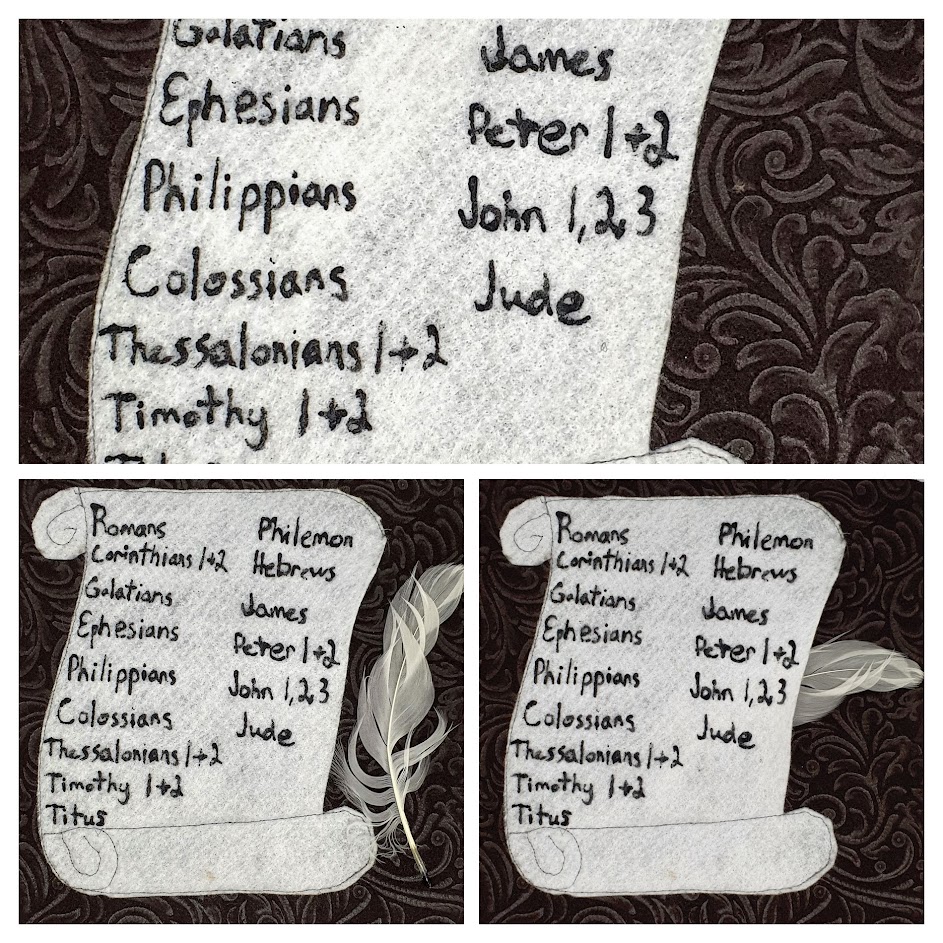 Galatians
Ephesians
Philippians
Colossians
Thessalonians 1+2
Timothy 1+2
James
Peter 1+2
John 1,2,3
Jude
Romans
Corinthians 1+2
Galatians
Ephesians
Philippians
Colossians
Thessalonians 1+2
Timothy 1+2
Titus
Philemon
Hebrews
James
Peter 1+2
John 1,2,3
Jude
Romans
Corinthians 1+2
Galatians
Ephesians
Philippians
Colossians
Thessalonians 1+2
Timothy 1+2
Titus
Philemon
Hebrews
James
Peter 1+2
John 1,2,3
Jude